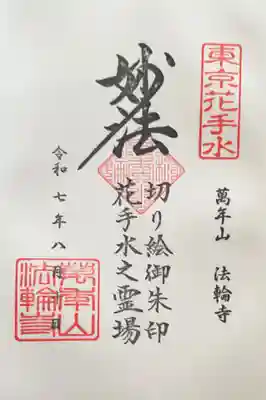 東京花手水
萬年山 法輪寺
妙法
切り絵御朱印
花手水之霊場
令和七年八月 日
萬年山
法輪寺